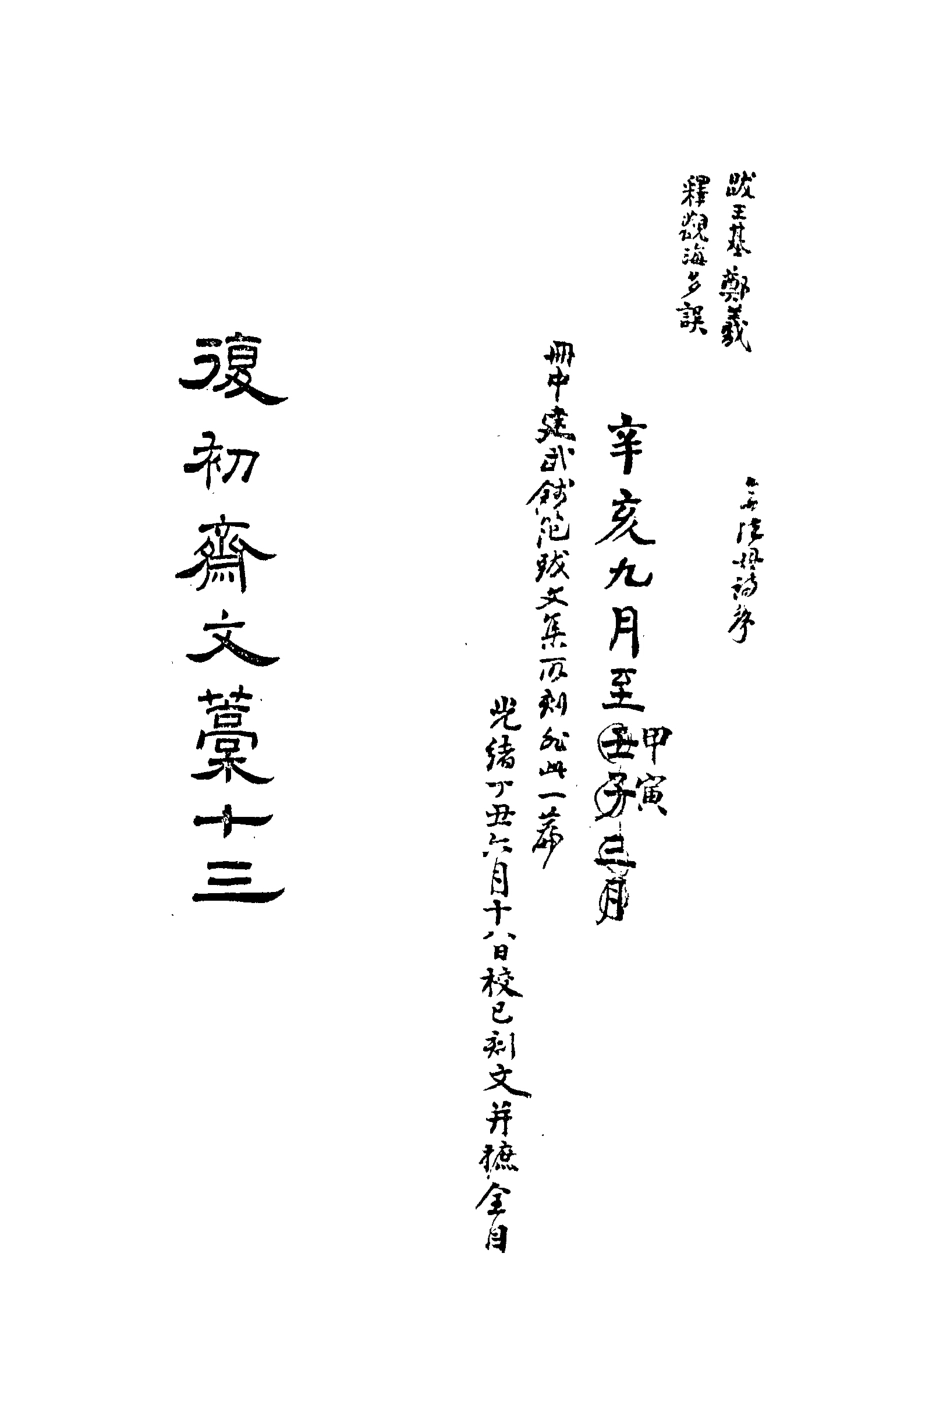 跋王基鄭羲
釋觀海多誤
詩序
辛亥九月至壬子三月
甲寅
冊中建武跋文集所刻此一篇
光緒丁丑六月十八日校已刻文并摭全目
復初齋文藁十三